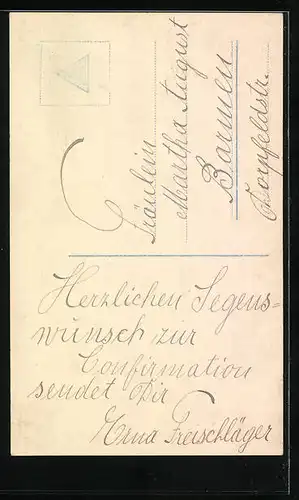 Fräulein
Martha August
Barmen
Herzlichen Segens-
wunsch zur
Confirmation
sendet Dir
Erna Freischläger